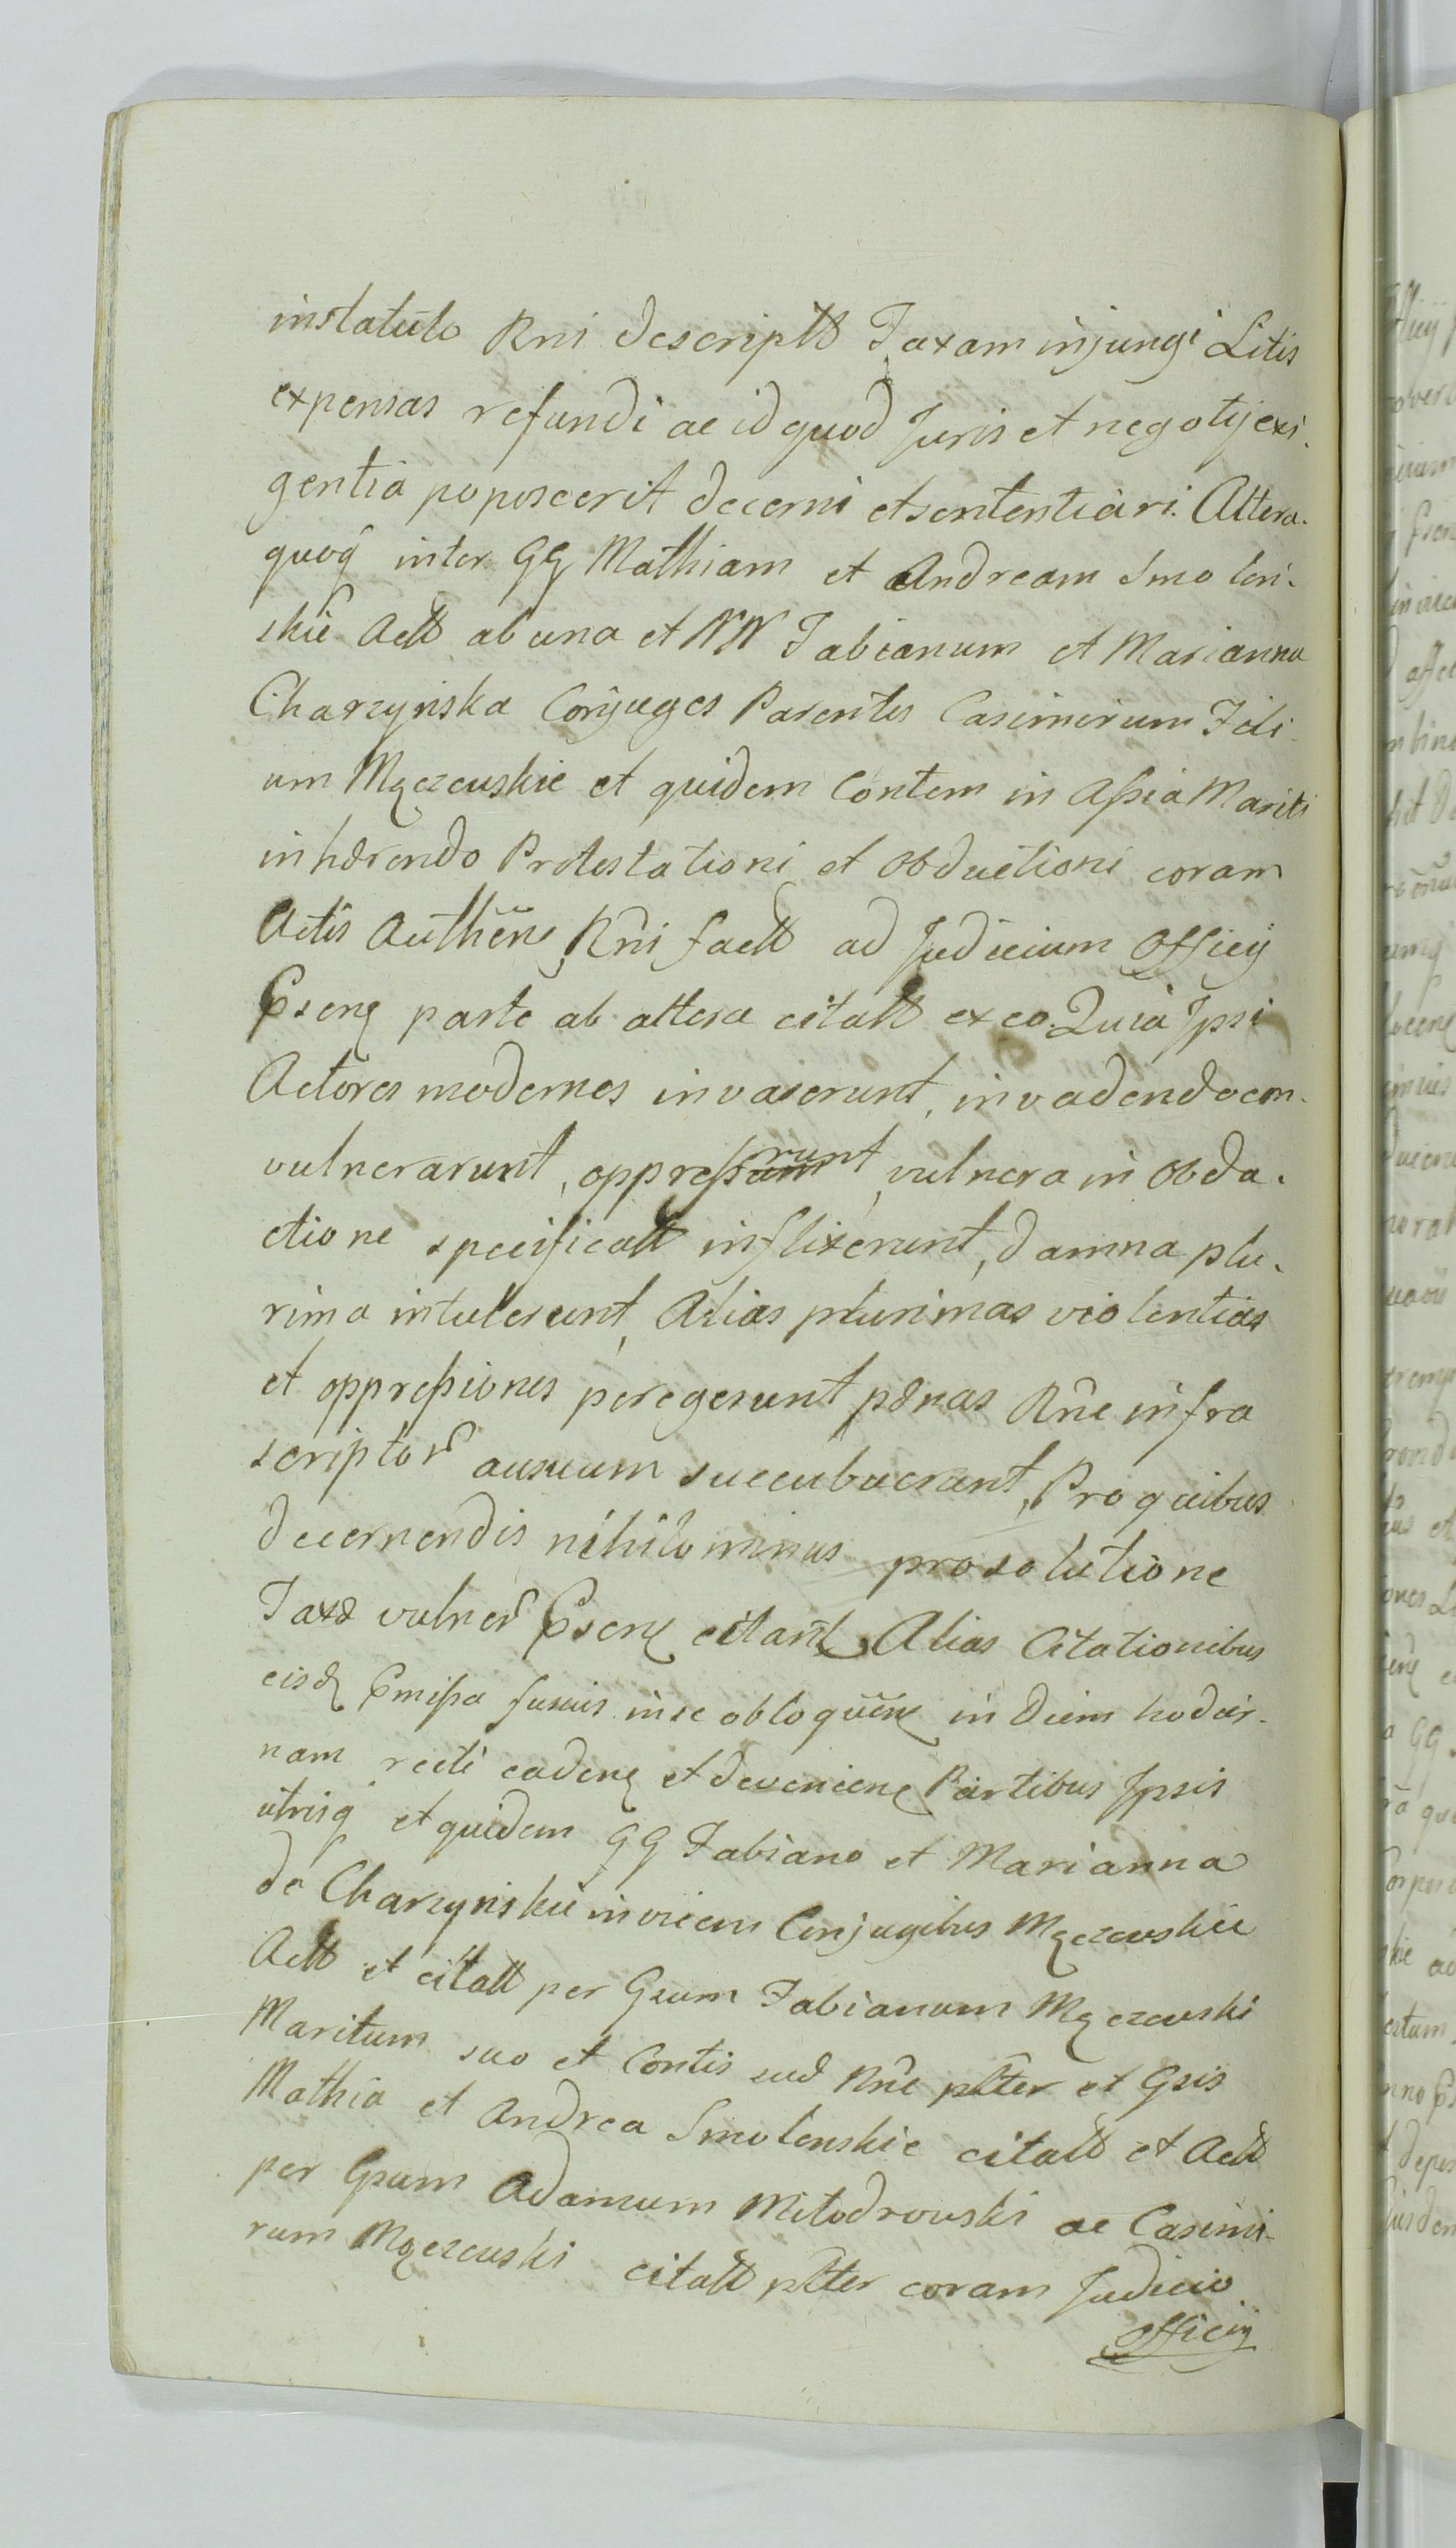 instatuto Rni descriptt Taxam injungi Litis
expensas refundi ac id quod Juris et negotij exi-
gentia poposcerit decerni et sententiari. Altera-
quoq inter GG Mathiam et Andream Smolen-
skie Actt ab una et NN Fabianum et Marianna
Charzynska Conjuges Parentes Casimirum Fili-
um Mączewskie et quidem Contem in Assia Mariti
inhærendo Protestationi et Obductioni coram
Actis Authēn Rni factt ad Judicium Officij
Psens parte ab altera citatt ex eo Quia Ipsi
Actores modernos invaserunt, invadendo con-
vulnerarunt, oppresserunt, vulnera in Obdu-
ctione specificatt inflixerunt, damna plu-
rima intulerunt, Alias plurimas violentias
et oppressiones peregerunt pænas Rne infra
scriptor ausuum succubuerunt, Pro quibus
decernendis nihilominus pro solutione
Taxæ vulner Psens citant Alias Citationibus
eisd Emissa fusius in se obloquēn in Diem hodier-
nam recte caden et devenien Partibus Ipsis
utrisq et quidem GG Fabiano et Marianna
de Charzynskie invicem Conjugibus Mączewskie
Actt et citatt per Gsum Fabianum Mączewski
Maritum suo et Contis suæ Rne plter et Gsis
Mathia et Andrea Smolenskie citatt et Actt
per Gsum Adamum Milodrowski ac Casimi-
rum Mączewski citatt plter coram Judicio
Officij